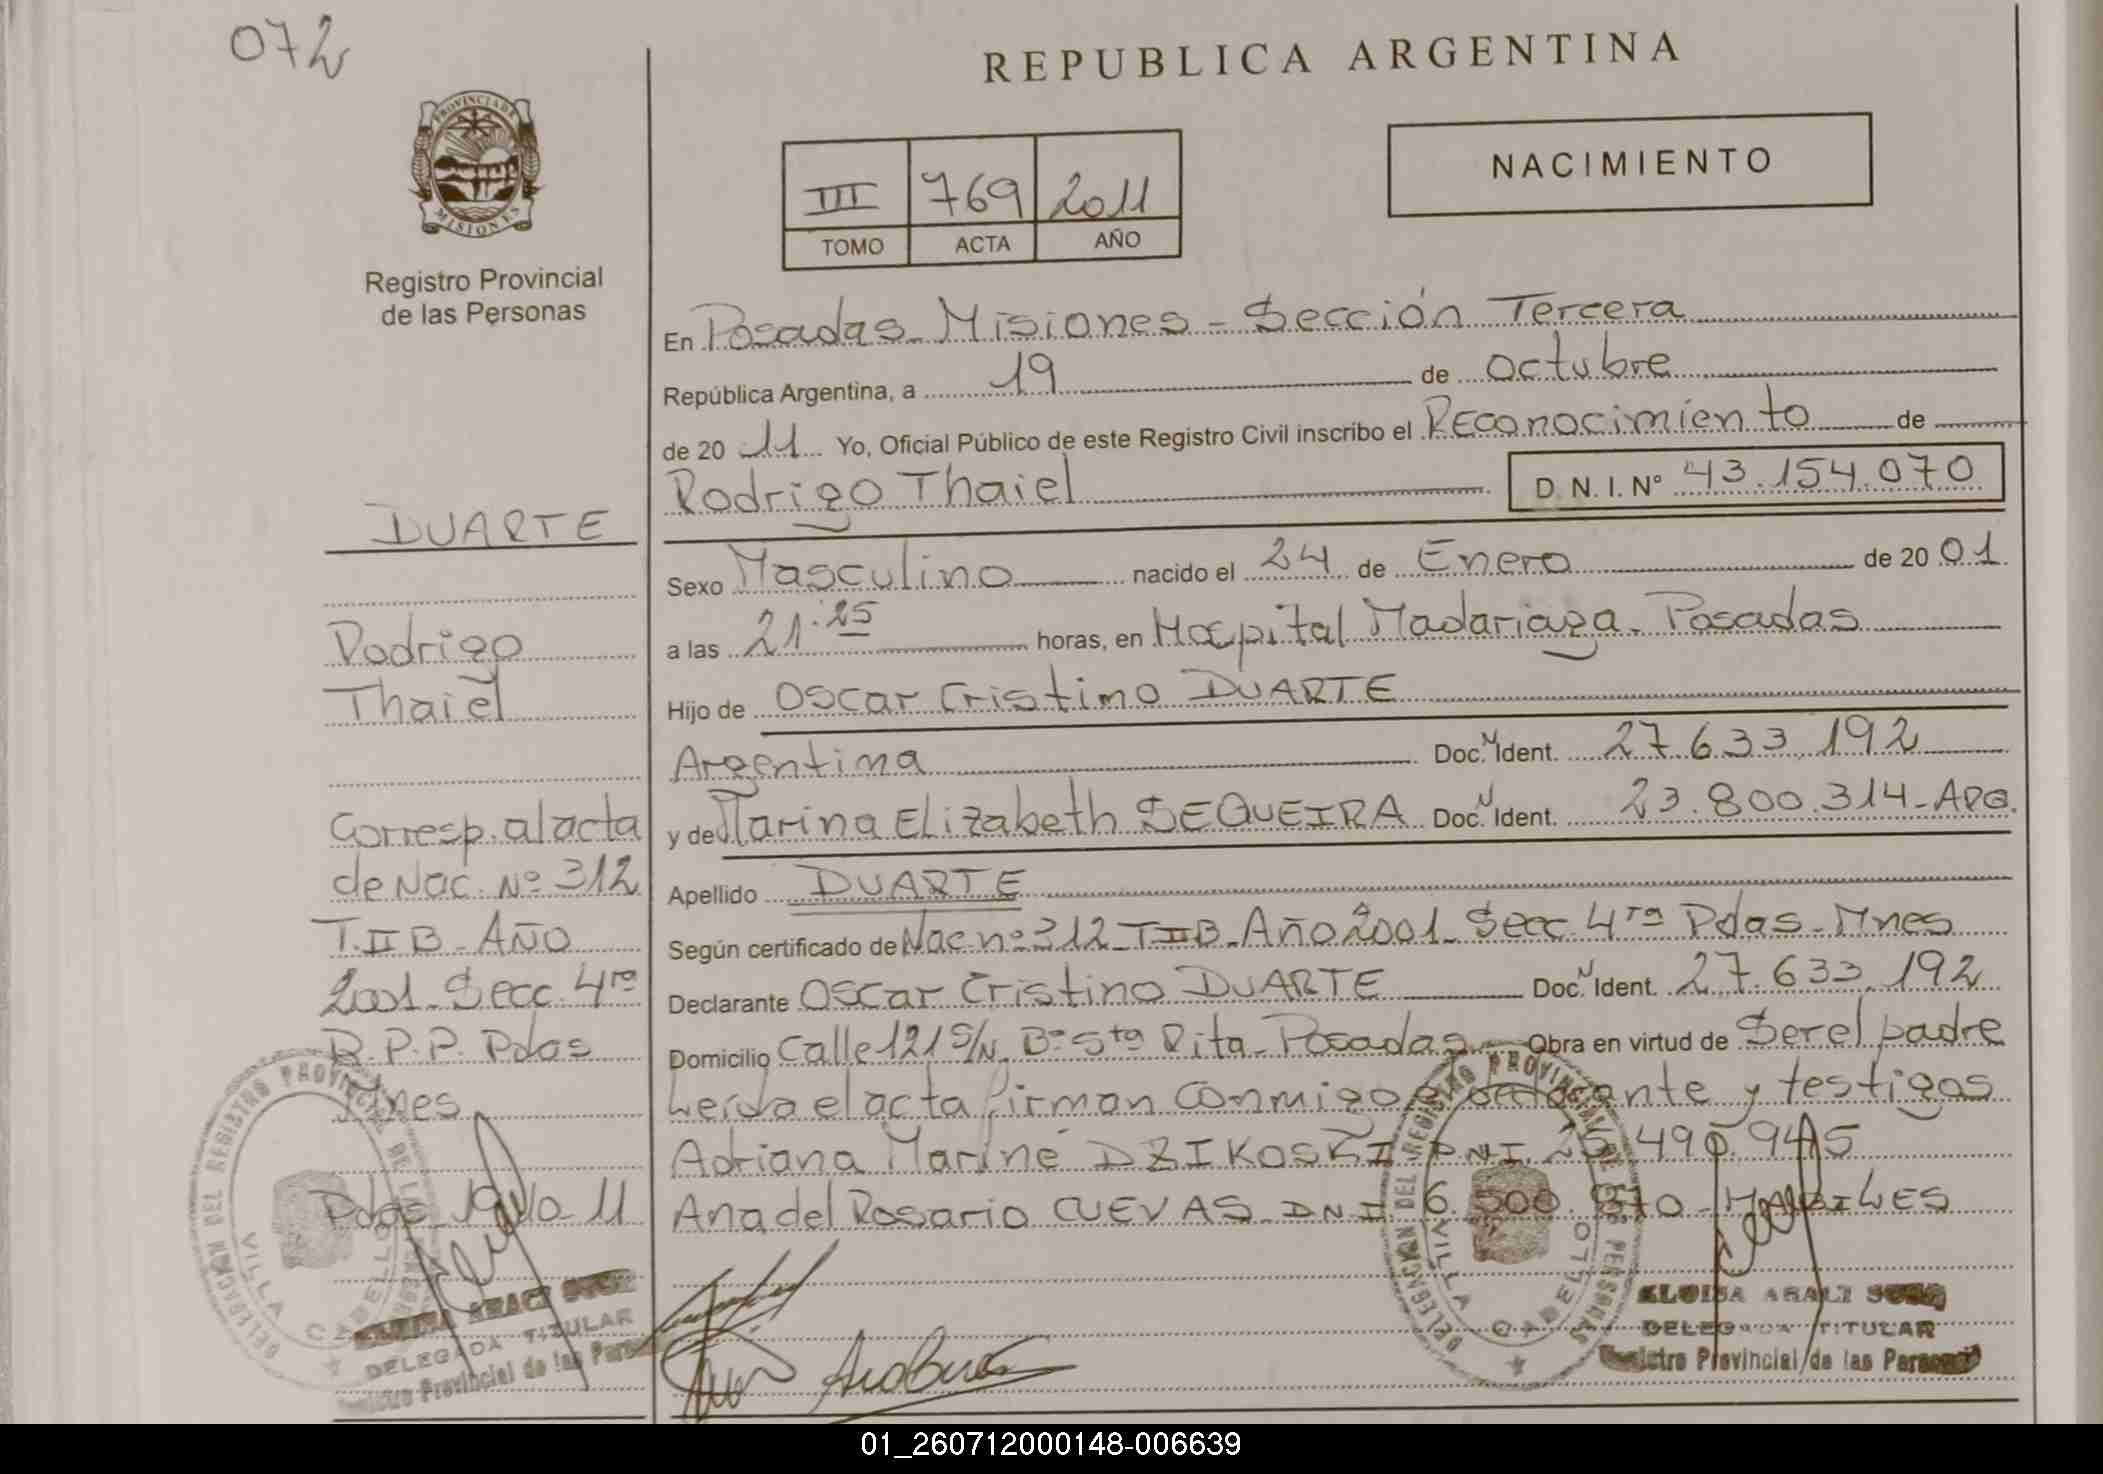 072
REPUBLICA ARGENTINA
PROVINCIA DE MISIONES
Registro Provincial
de las Personas
III 769 2011
TOMO ACTA AÑO
NACIMIENTO
En Posadas Misiones - Sección Tercera
República Argentina, a 19 de octubre
de 2011 Yo, Oficial Público de este Registro Civil inscribo el Reconocimiento de
Rodrigo Thaiel D.N.I. N° 43.154.070
Sexo Masculino nacido el 24 de Enero de 2001
a las 21:25 horas, en Hospital Madariaga - Posadas
Hijo de Oscar Cristino DUARTE
Argentina Doc. N Ident. 27.633.192
y de Marina Elizabeth SEQUEIRA Doc. N Ident. 23.800.314 - ARG.
Apellido DUARTE
Según certificado de Nac. nº 312 - T IIB - Año 2001 - Secc. 4ta Pdas - Mnes
Declarante Oscar Cristino DUARTE Doc. N Ident. 27.633.192
Domicilio Calle 121 S/N. Bº Sta Rita - Posadas - Obra en virtud de Ser el padre
Leída el acta firman conmigo el declarante y testigos
Adriana Mariné DZIKOSKI DNI. 25.490.945
Ana del Rosario CUEVAS - DNI 6. - HABILES
DUARTE
Rodrigo
Thaiel
Corresp. al acta
de Nac. Nº 312
T. II B - AÑO
2001 - Secc. 4ta
R.P.P. Pdas
Mnes
Pdas 19/10 - 11
DELEGACION DEL REGISTRO PROVINCIAL DE LAS PERSONAS
VILLA CABELLO
DELEGADA TITULAR
Registro Provincial de las Personas
DELEGACION DEL REGISTRO PROVINCIAL DE LAS PERSONAS
VILLA CABELLO
DELEGADA TITULAR
Registro Provincial de las Personas
01_260712000148-006639